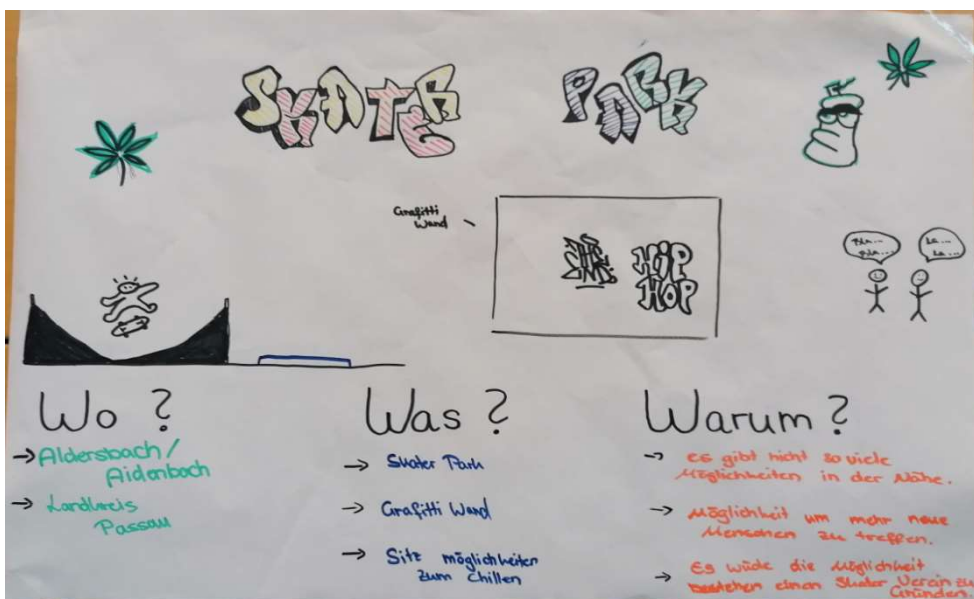 SKATER PARK
Grafitti
Wand
HIP
HOP
Bla...
Bla...
La...
La...
Wo ?
→ Aldersbach /
Aidenbach
→ Landkreis
Passau
Was ?
→ Skater Park
→ Grafitti Wand
→ Sitz möglichkeiten
zum Chillen
Warum ?
→ es gibt nicht so viele
Möglichkeiten in der Nähe.
→ Möglichkeit um mehr neue
Menschen zu treffen.
→ Es wüde die Möglichkeit
bestehen einen Skater Verein zu
Gründen.